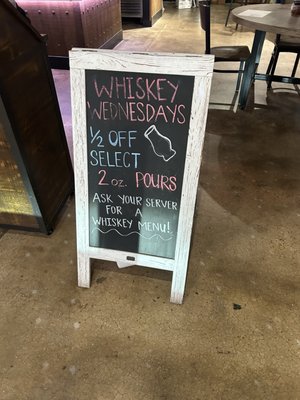 WHISKEY
WEDNESDAYS
1/2 OFF
SELECT
2 oz. POURS
ASK YOUR SERVER
FOR A
WHISKEY MENU!